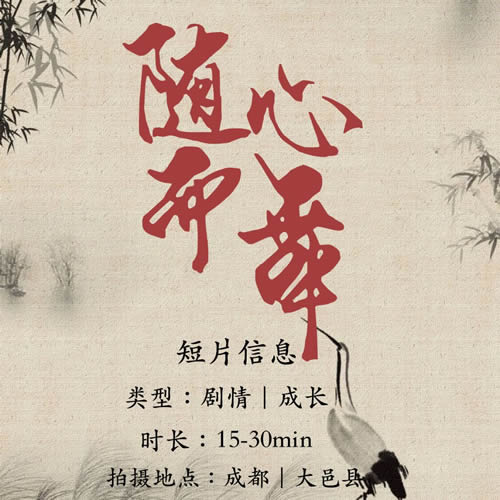 随心
而舞
短片信息
类型：剧情｜成长
时长：15-30min
拍摄地点：成都｜大邑县